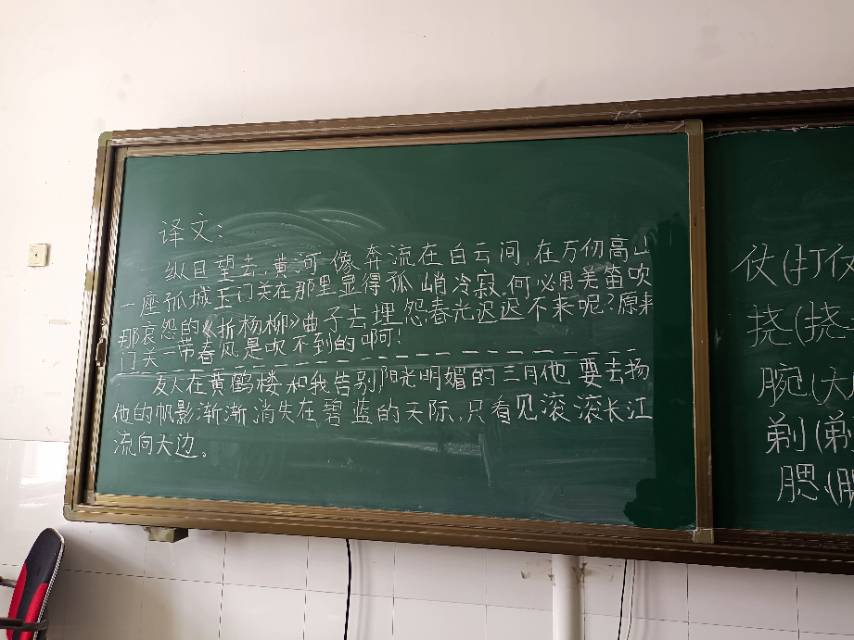 译文:
纵目望去,黄河像奔流在白云间,在万仞高山
一座孤城玉门关在那里显得孤峭冷寂,何必用羌笛吹
那哀怨的《折杨柳》曲子去埋怨春光迟迟不来呢?原来
门关一带春风是吹不到的啊!
友人在黄鹤楼和我告别,阳光明媚的三月他要去扬
他的帆影渐渐消失在碧蓝的天际,只看见滚滚长江
流向大边。
仗(打仗
挠(挠
腕(大
剃(剃
腮(腮